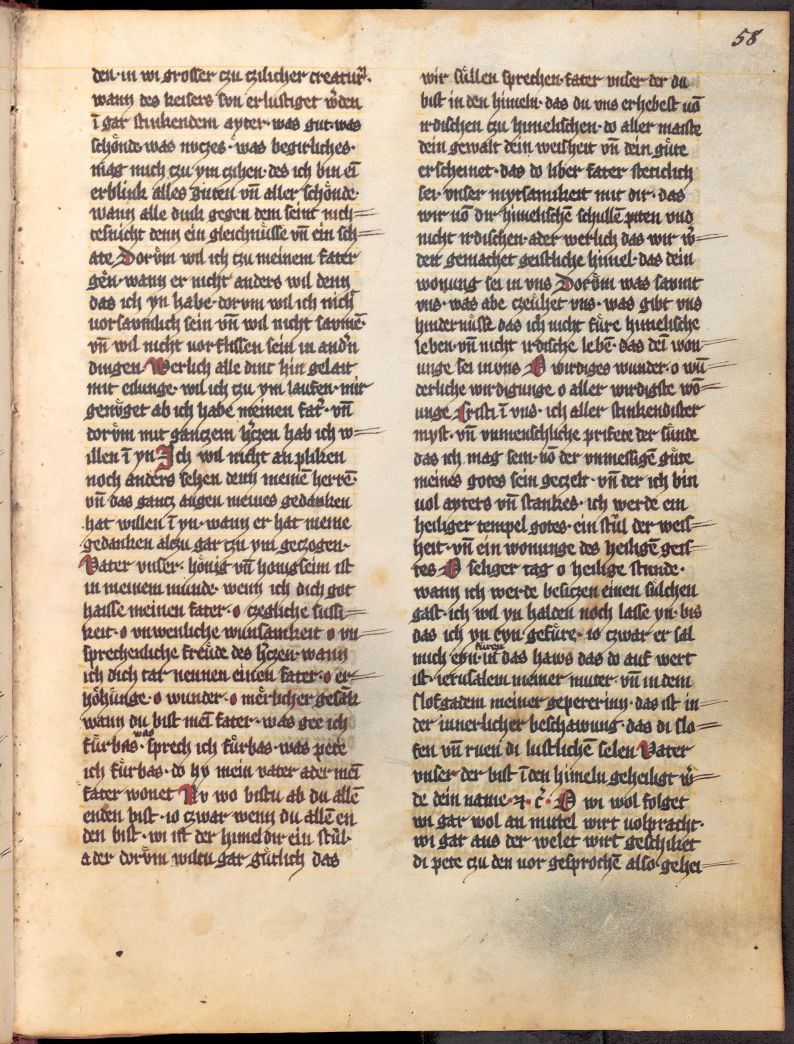 58
den· in wi grosser czu czilicher creatur͛·
wann des keisers son erlustiget w͛den
ī gar stinkendem ayter· was gut· was
schönde was nuczes· was begirliches·
mag mich czu ym czihen· des ich bin eī
erblikk alles guten vn̄ aller schönde·
wann alle dink gegen dem seint nich=
tesnicht denn ein gleichnüsse vn̄ ein sch=
ate Dorům wil ich czu meinem fater
gen· wann er nicht anders wil denn
das ich yn habe· dorvm wil ich nich
vorsavmlich sein vn̄ wil nicht savmē·
vn̄ wil nicht vorflissen sein in and͛n
dingen Werlich alle dint hin gelait
mit eilunge· wil ich czu ym laufen· mir
genüget ab ich habe meinen fat͛· vn̄
dorům mit ganczem h͛czen hab ich w=
illen ī yn Ich wil nicht an pliken
noch anders sehen denn meinē herrē·
vn̄ das gancz augen meines gedanken
hat willen ī yn· wann er hat meine
gedanken alczu gar czu ym geczogen·
Vater vnser· hönig vn̄ honigseim ist
in meinem munde· wenn ich dich got
haisse meinen fater· o czegliche sussi=
keit· o vnwenliche wunsamkeit o vn=
sprechenliche freude des h͛czen· wann
ich dich tar nennen einen fater· o er=
höhunge· o wunder· o merlicher gesāk
wann du bist meī fater· was gee ich
fürbas· was sprech ich fürbas· was pete
ich fürbas· do hy mein vater ader meī
fater wonet Nv wo bistu ab du allē
enden bist· io czwar wenn du allē en
den bist· wi ist der himel dir ein stůl·
ader dorům wiltu gar gütlich das
wir süllen sprechen· fater vnser der du
bist in den himeln· das du vns erhebest vō
irdischen czu himelischen· do aller maiste
dein gewalt dein weisheit vn̄ dein güte
erscheinet· das do liber fater steticlich
sei· vnser mytsamikeit mit dir· das
wir vō dir himelischē schullē piten vnd
nicht irdischen· ader werlich das wir w͛=
den gemachet geistliche himel· das dein
wonung sei in vns Dorům was savmt
vns· was abe czeuhet vns· was gibt vns
hindernüsse das ich nicht füre himelische
leben· vn̄ nicht irdische lebē· das deī won=
unge sei in vns O wirdiges wunder· o wū=
derliche wirdigunge o aller wirdigste wō=
unge Cristi ī vns· ich aller stinkendister
myst· vn̄ vnmenschliche prifete der sunde
das ich mag sein· vō der vnmessigē güte
meines gotes sein geczelt· vn̄ der ich bin
vol ayters vn̄ stankes· ich werde ein
heiliger tempel gotes· ein stůl der weis=
heit· vn̄ ein wonunge des heiligē geis=
tes O seliger tag o heilige stunde·
wann ich werde besiczen einen sülchen
gast· ich wil yn halden noch lasse yn· bis
das ich yn eyn gefüre· io czwar er sal
mich eyn füren in das haws das do auf wert
ist· ierusalem meiner muter· vn̄ in dem
slofgadem meiner gepererinn· das ist in=
der innerlicher beschawung· das di slo=
fen vn̄ ruen di lustlichē selen Vater
vnser der bist ī den himeln geheiligt w͛=
de dein name· ⁊· c̄· O wi wol folget
wi gar wol an mittel wirt volpracht·
wi gar aus der welet wirt geschiket
di pete czu den vor gesprochē also gehei=